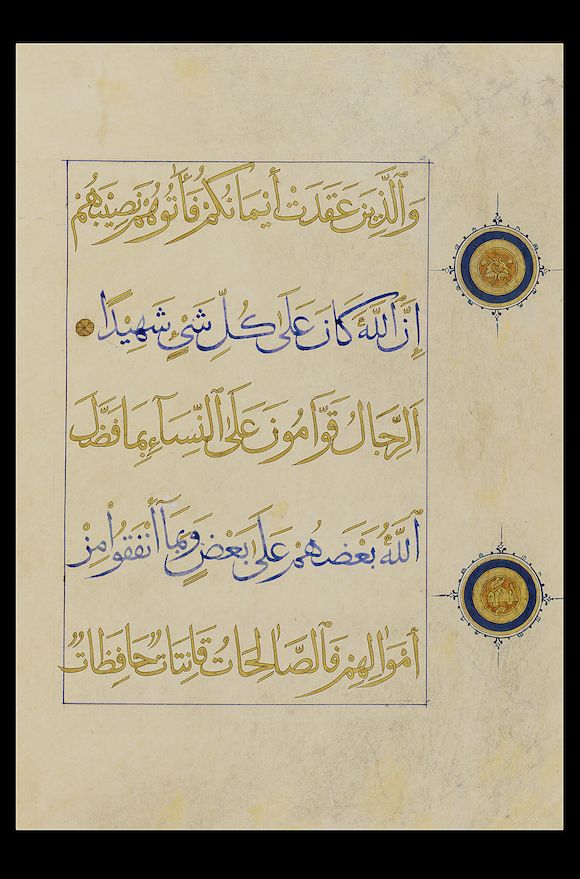 وَٱلَّذِينَ عَقَدَتْ أَيْمَانُكُمْ فَـَٔاتُوهُمْ نَصِيبَهُمْ
إِنَّ ٱللَّهَ كَانَ عَلَىٰ كُلِّ شَىْءٍ شَهِيدًا
ٱلرِّجَالُ قَوَّامُونَ عَلَى ٱلنِّسَآءِ بِمَا فَضَّلَ
ٱللَّهُ بَعْضَهُمْ عَلَىٰ بَعْضٍ وَبِمَآ أَنْفَقُوا۟ مِنْ
أَمْوَٰلِهِمْ فَٱلصَّالِحَاتُ قَانِتَاتٌ حَافِظَاتٌ